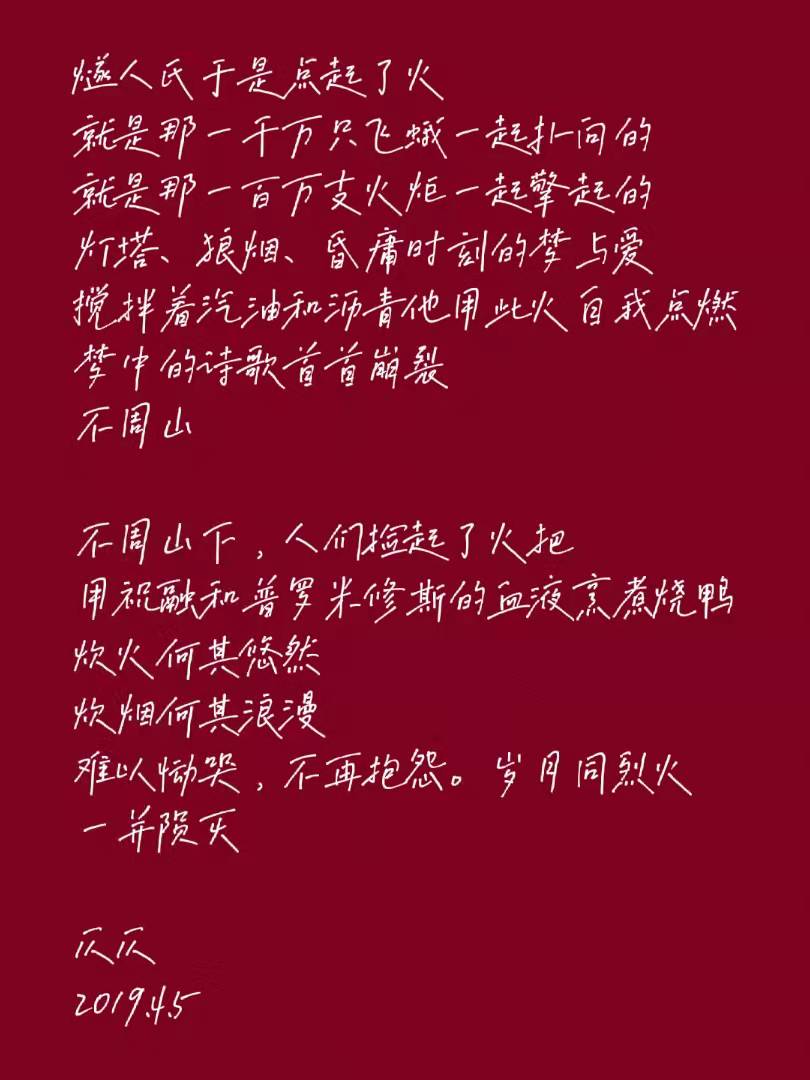 燧人氏于是点起了火
就是那一千万只飞蛾一起扑向的
就是那一百万支火炬一起擎起的
灯塔、狼烟、昏庸时刻的梦与爱
搅拌着汽油和沥青他用此火自我点燃
梦中的诗歌首首崩裂
不周山
不周山下，人们捡起了火把
用祝融和普罗米修斯的血液烹煮烧鸭
炊火何其悠然
炊烟何其浪漫
难以恸哭，不再抱怨。岁月同烈火
一并陨灭
仄仄
2019.4.5